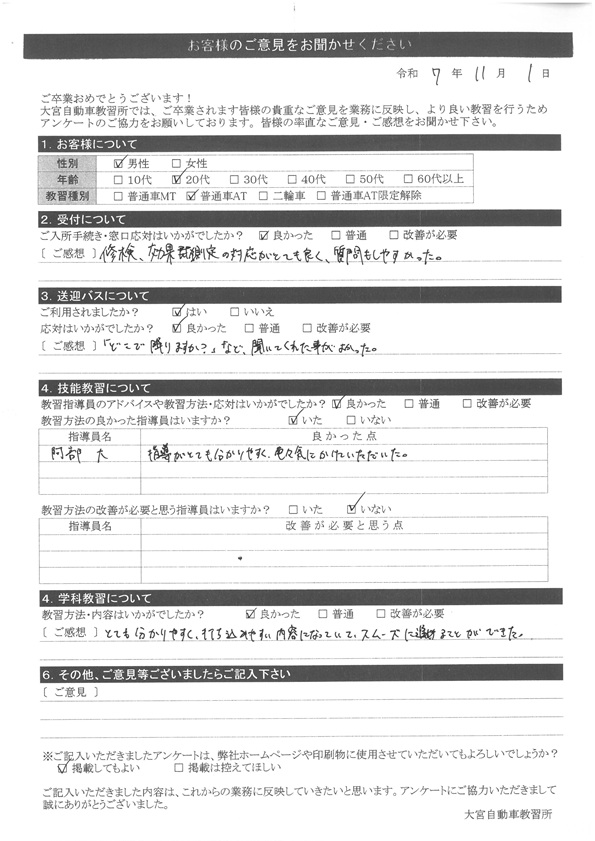 お客様のご意見をお聞かせください
令和 7 年 11 月 1 日
ご卒業おめでとうございます！
大宮自動車教習所では、ご卒業されます皆様の貴重なご意見を業務に反映し、より良い教習を行うため
アンケートのご協力をお願いしております。皆様の率直なご意見・ご感想をお聞かせ下さい。
1. お客様について
性別 ☑男性 □女性
年齢 □10代 ☑20代 □30代 □40代 □50代 □60代以上
教習種別 □普通車MT ☑普通車AT □二輪車 □普通車AT限定解除
2. 受付について
ご入所手続き・窓口応対はいかがでしたか？ ☑良かった □普通 □改善が必要
［ ご感想 ］修検、効果測定の対応がとても良く、質問もしやすかった。
3. 送迎バスについて
ご利用されましたか？ ☑はい □いいえ
応対はいかがでしたか？ ☑良かった □普通 □改善が必要
［ ご感想 ］「どこで降りますか？」など、聞いてくれた事がよかった。
4. 技能教習について
教習指導員のアドバイスや教習方法・応対はいかがでしたか？ ☑良かった □普通 □改善が必要
教習方法の良かった指導員はいますか？ ☑いた □いない
指導員名 良かった点
阿部 大 指導がとても分かりやすく、色々気にかけていただいた。
教習方法の改善が必要と思う指導員はいますか？ □いた ☑いない
指導員名 改善が必要と思う点
4. 学科教習について
教習方法・内容はいかがでしたか？ ☑良かった □普通 □改善が必要
［ ご感想 ］とても分かりやすく、打ち込みやすい内容になっていて、スムーズに進めることができた。
6. その他、ご意見等ございましたらご記入下さい
［ ご意見 ］
※ご記入いただきましたアンケートは、弊社ホームページや印刷物に使用させていただいてもよろしいでしょうか？
☑掲載してもよい □掲載は控えてほしい
ご記入いただきました内容は、これからの業務に反映していきたいと思います。アンケートにご協力いただきまして
誠にありがとうございました。
大宮自動車教習所